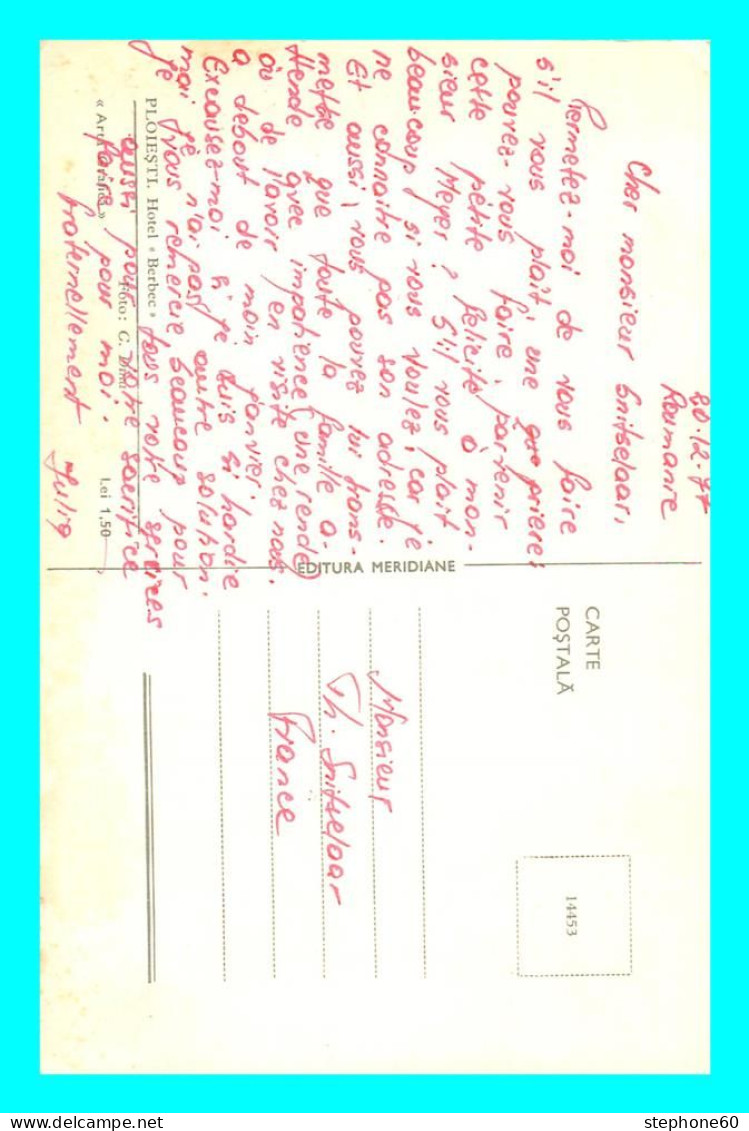 20.12.77
Roumanie
Cher monsieur Snitselaar,
Permetez-moi de vous faire
s'il vous plaît, une priere:
pouvez-vous faire parvenir
cette pétite felicité à mon-
sieur Meyer? S'il vous plaît
beaucoup si vous voulez, car je
ne connaitre pas son adresse.
Et aussi, vous pouvez lui trans-
mettre que toute la famille a-
ttende avec impatience, une rende
ou de l'avoir en visite chez nous.
a debout de moin janvier.
Excausez-moi si je suis si hardie
mai je n'ai pas autre solution.
Je vous remercie beaucoup pour
tous votre services
aussi pour votre sacrifice
faire pour moi.
fraternellement Julia
PLOIEŞTI. Hotel « Berbec »
Foto: C. Dimi
« Arta Grafică »
Lei 1,50
EDITURA MERIDIANE
CARTE
POŞTALĂ
14453
Monsieur
Th. Snitselaar
France
stephone60